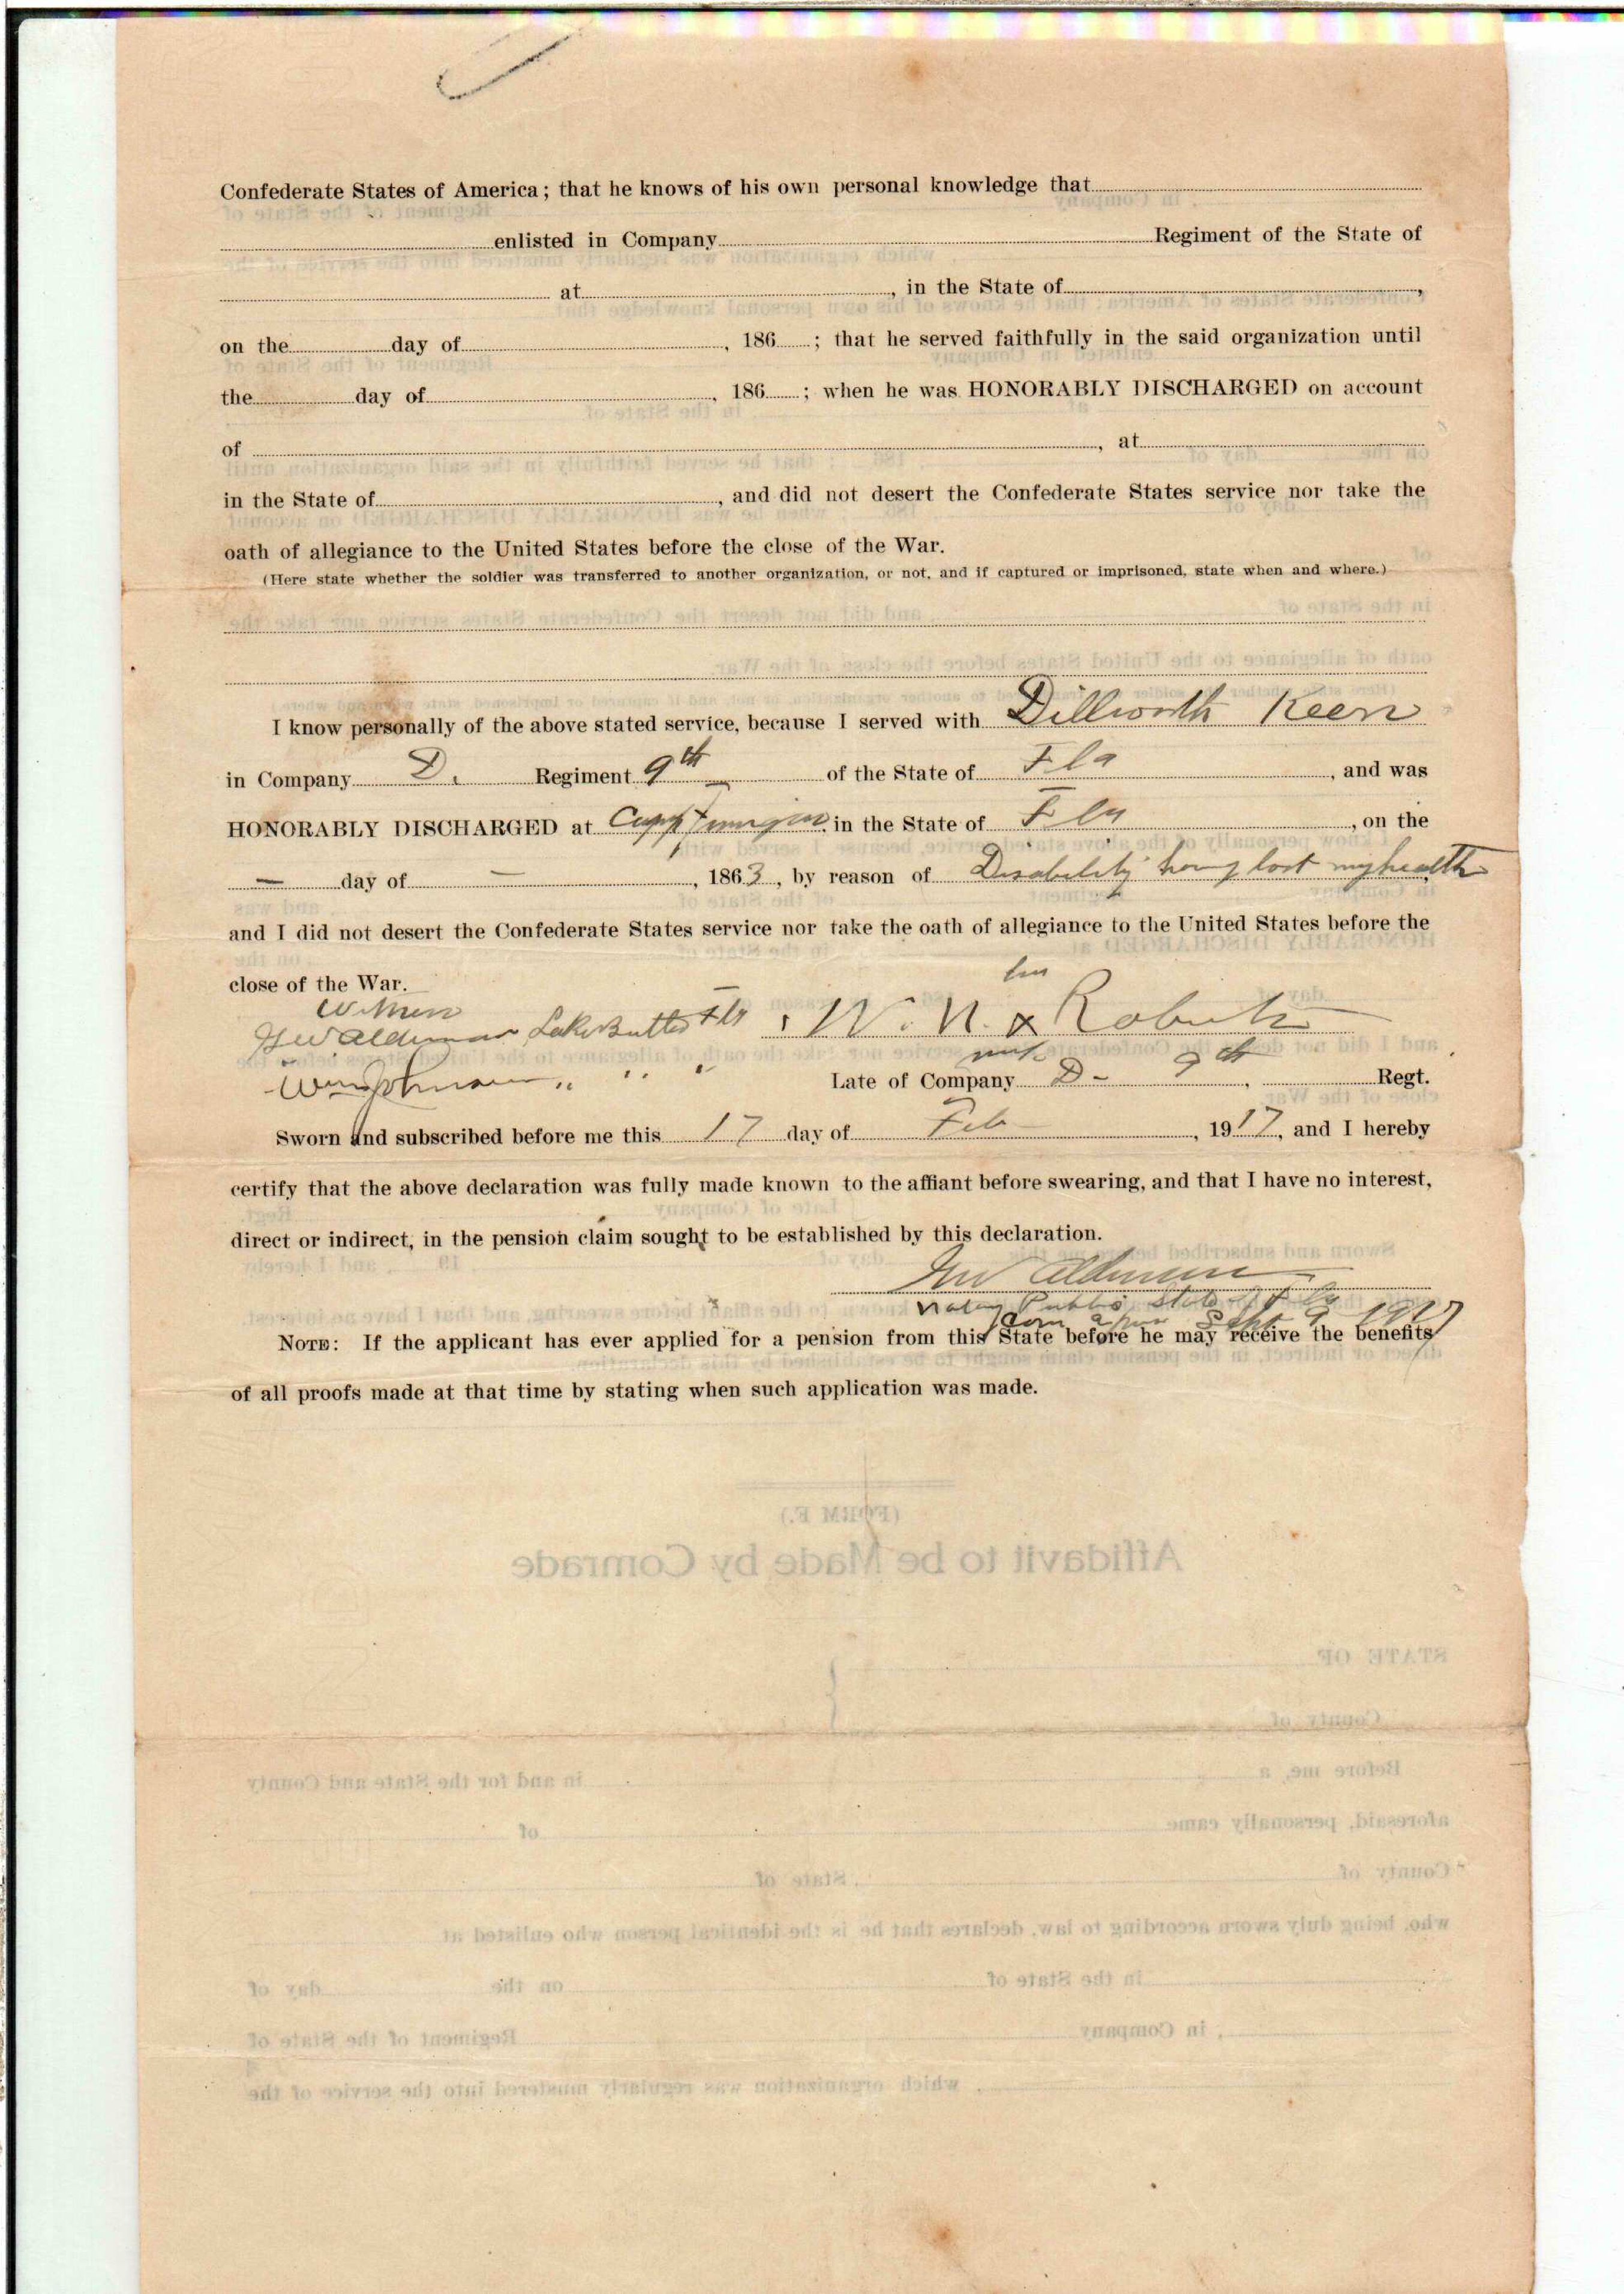 Confederate States of America; that he knows of his own personal knowledge that
enlisted in Company Regiment of the State of
at , in the State of ,
on the day of , 186 ; that he served faithfully in the said organization until
the day of , 186 ; when he was HONORABLY DISCHARGED on account
of , at
in the State of , and did not desert the Confederate States service nor take the
oath of allegiance to the United States before the close of the War.
(Here state whether the soldier was transferred to another organization, or not, and if captured or imprisoned, state when and where.)
I know personally of the above stated service, because I served with Dillworth Keen
in Company D. Regiment 9th of the State of Fla , and was
HONORABLY DISCHARGED at Camp in the State of Fla , on the
— day of — , 1863, by reason of Disability having lost my health
and I did not desert the Confederate States service nor take the oath of allegiance to the United States before the
close of the War.
Witness
Lake Butler Fla
his
W. N. x Roberts
mark
Wm Johnson " " "
Late of Company D - 9th , Regt.
Sworn and subscribed before me this 17 day of Feb , 1917, and I hereby
certify that the above declaration was fully made known to the affiant before swearing, and that I have no interest,
direct or indirect, in the pension claim sought to be established by this declaration.
Alderman
Notary Public State of Fla
Com Sept 9 1917
NOTE: If the applicant has ever applied for a pension from this State before he may receive the benefits
of all proofs made at that time by stating when such application was made.